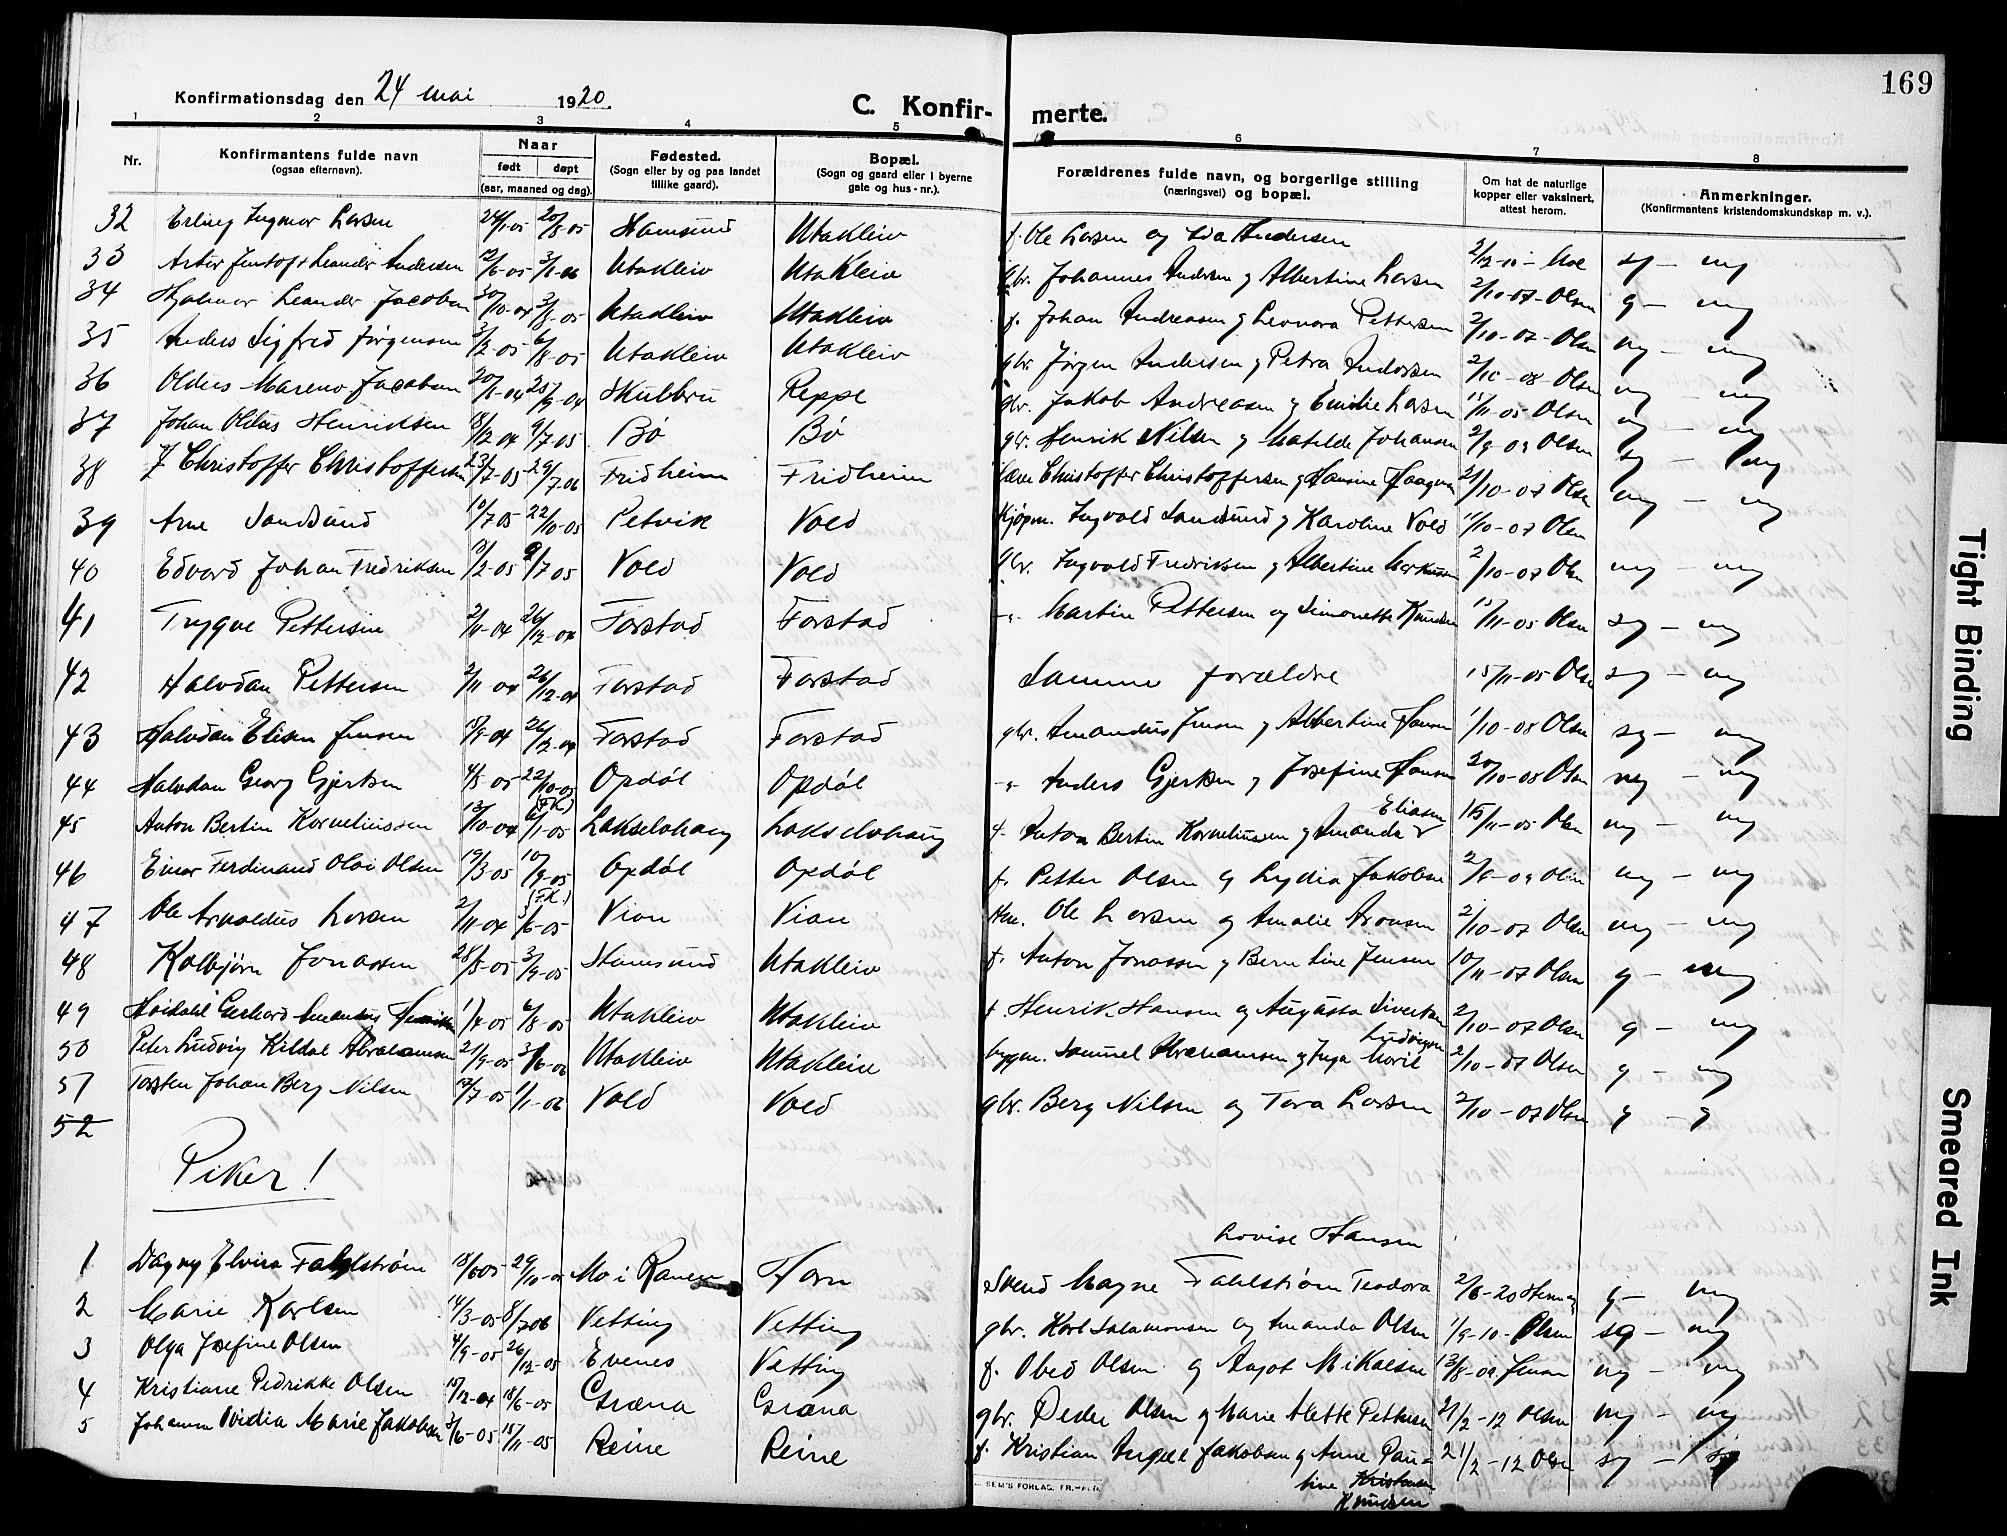 169
Konfirmationsdag den 24 mai 1920.
C. Konfir- merte.
1 2 3 4 5 6 7 8
Nr.
Konfirmantens fulde navn
(ogsaa efternavn).
Naar
født døpt
(aar, maaned og dag).
Fødested.
(Sogn eller by og paa landet
tillike gaard).
Bopæl.
(Sogn og gaard eller i byerne
gate og hus-nr.).
Forældrenes fulde navn, og borgerlige stilling
(næringsvei) og bopæl.
Om hat de naturlige
kopper eller vaksinert,
attest herom.
Anmerkninger.
(Konfirmantens kristendomskundskap m. v.).
32 Erling Ingmar Larsen 24/1-05 20/8-05 Stamsund Utakleiv f. Ole Larsen og Ida Andersen 2/12-11- Moe sg - mg
33 Leander Andersen 12/6-05 3/1-06 Utakleiv Utakleiv gbr. Johannes Andersen og Albertine Larsen 2/10-07- Olsen g - mg
34 Hjalmar Leander Jacobsen 30/10-04 3/8-05 Utakleiv Utakleiv f. Johan Andreasen og Leonora Pettersen 2/10-07- Olsen mg - mg
35 Anders Sigfred Jørgensen 3/2-05 6/8-05 Utakleiv Utakleiv gbr. Jørgen Andersen og Petra Andersen 2/10-08- Olsen mg - mg
36 Oldus Mareno Jacobsen 20/1-04 25/9-04 Skulbru Reppe gbr. Jakob Andreasen og Emilie Larsen 15/11-05 Olsen mg - mg
37 Johan Oldus Henriksen 18/12 04 9/7-05 Bø Bø gbr. Henrik Nilsen og Matilde Johansen 2/9-09 Olsen sg - mg
38 J Christoffer Christoffersen 23/7-05 29/7-06 Fridheim Fridheim Christoffer Christoffersen og Hansine Haagensen 21/10-07 Olsen mg - mg
39 Arne Sandsund 10/7 05 22/10-05 Petvik Vold Kjøpm. Ingvald Sandsund og Karoline Vold 1/10-07 Olsen
40 Edvard Johan Fredriksen 12/2-05 9/7 05 Vold Vold gbr. Ingvald Fredriksen og Albertine Markussen 2/10-07 Olsen mg - mg
41 Trygve Pettersen 2/11-04 26/12-04 Farstad Farstad -"- Martin Pettersen og Simonette Knudsen 15/11-05 Olsen sg - mg
42 Halvdan Pettersen 2/11 04 26/12-04 Farstad Farstad Samme forældre 15/11-05 Olsen sg - mg
43 Halvdan Elisen Jensen 18/9-04 26/12-04 Farstad Farstad gbr. Amandus Jensen og Albertine Hansen 1/10-08 Olsen sg - mg
44 Halvdan Georg Gjertsen 4/8-05 22/10-05 Opdøl Opdøl -"- Anders Gjertsen og Josefine Hansen 20/10-08 Olsen mg - mg
45 Anton Bertin Korneliussen 13/10-04 (FK) 6/1-05 f. Anton Bertin Korneliussen og Amanda Eliasen 15/11-05 Olsen mg - mg
46 Einar Ferdinand Olai Olsen 19/3-05 10/9-05 Opdøl Opdøl f. Petter Olsen og Lydia Jakobsen 2/9-09 Olsen mg - mg
47 Ole Arnoldus Larsen 2/11-04 (FK.) 5/6-05 Vian Vian Ole Larsen og Amalie Aronsen 2/10-07 Olsen mg - mg
48 Kolbjørn Jonassen 28/5-05 3/9-05 Stamsund Utakleiv f. Anton Jonassen og Berntine Jensen 10/11-07 Olsen g - mg
49 Gerhard 1/4-05 6/8-05 Utakleiv Utakleiv f. Henrik Hansen og Augusta Sivertsen 2/10-07 Olsen g - mg
50 Peter Ludvig Kildal Abrahamsen 21/9-05 3/6-06 Utakleiv Utakleiv byggm. Samuel Abrahamsen og Inga Marie Ludvigsen 2/10-07 Olsen g - mg
51 Torsten Johan Berg Nilsen 12/7-05 1/1-06 Vold Vold gbr. Berg Nilsen og Tora Larsen 2/10-07 Olsen g - g
52
Piker!
1 Dagny Elvira Fahlstrøm 18/6 05 29/10-05 Mo i Ranen Horn Svend Magne Fahlstrøm Teodora Lovise Hansen 2/6-20 g - mg
2 Marie Karlsen 14/3-05 8/7 06 Vetting Vetting gbr. Karl Salamonsen og Amanda Olsen 1/9-10- Olsen sg - mg
3 Olga Josefine Olsen 4/9-05 26/12-05 Evenes Vetting f. Obed Olsen og Aagot Mikalsen 13/8-09 Jensen mg - mg
4 Kristiane Pedrikke Olsen 15/12-04 18/6-05 Græna Græna gbr. Peder Olsen og Marie Alette Pettersen 21/2-12 Olsen mg - mg
5 Johanna Ovidia Marie Jakobsen 3/6-05 15/11-05 Reine Reine f. Kristian Angell Jakobsen og Anne Pau-
line Kristensen
Knudsen 21/2-12 Olsen sg - sg
SEM'S FORLAG, FR.HALD.
Tight Binding
Smeared Ink